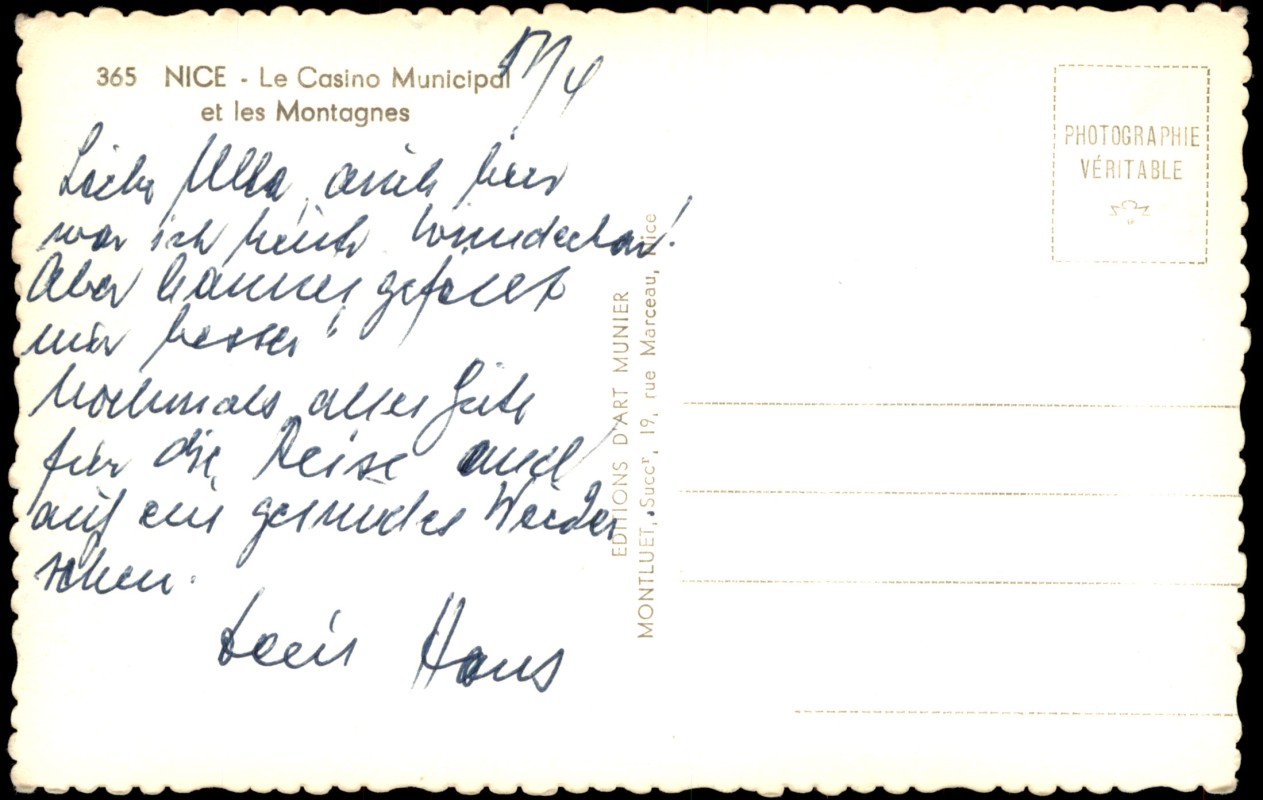 365 NICE - Le Casino Municipal
et les Montagnes
Liebe Ulla, auch hier
war ich heute. Wunderbar!
Aber Cannes gefällt
mir besser!
Nochmals alles Gute
für die Reise und
auf ein gesundes Wieder
sehen.
Dein Hans
EDITIONS D'ART MUNIER
MONTLUET, Succʳ, 19, rue Marceau, Nice
PHOTOGRAPHIE
VÉRITABLE